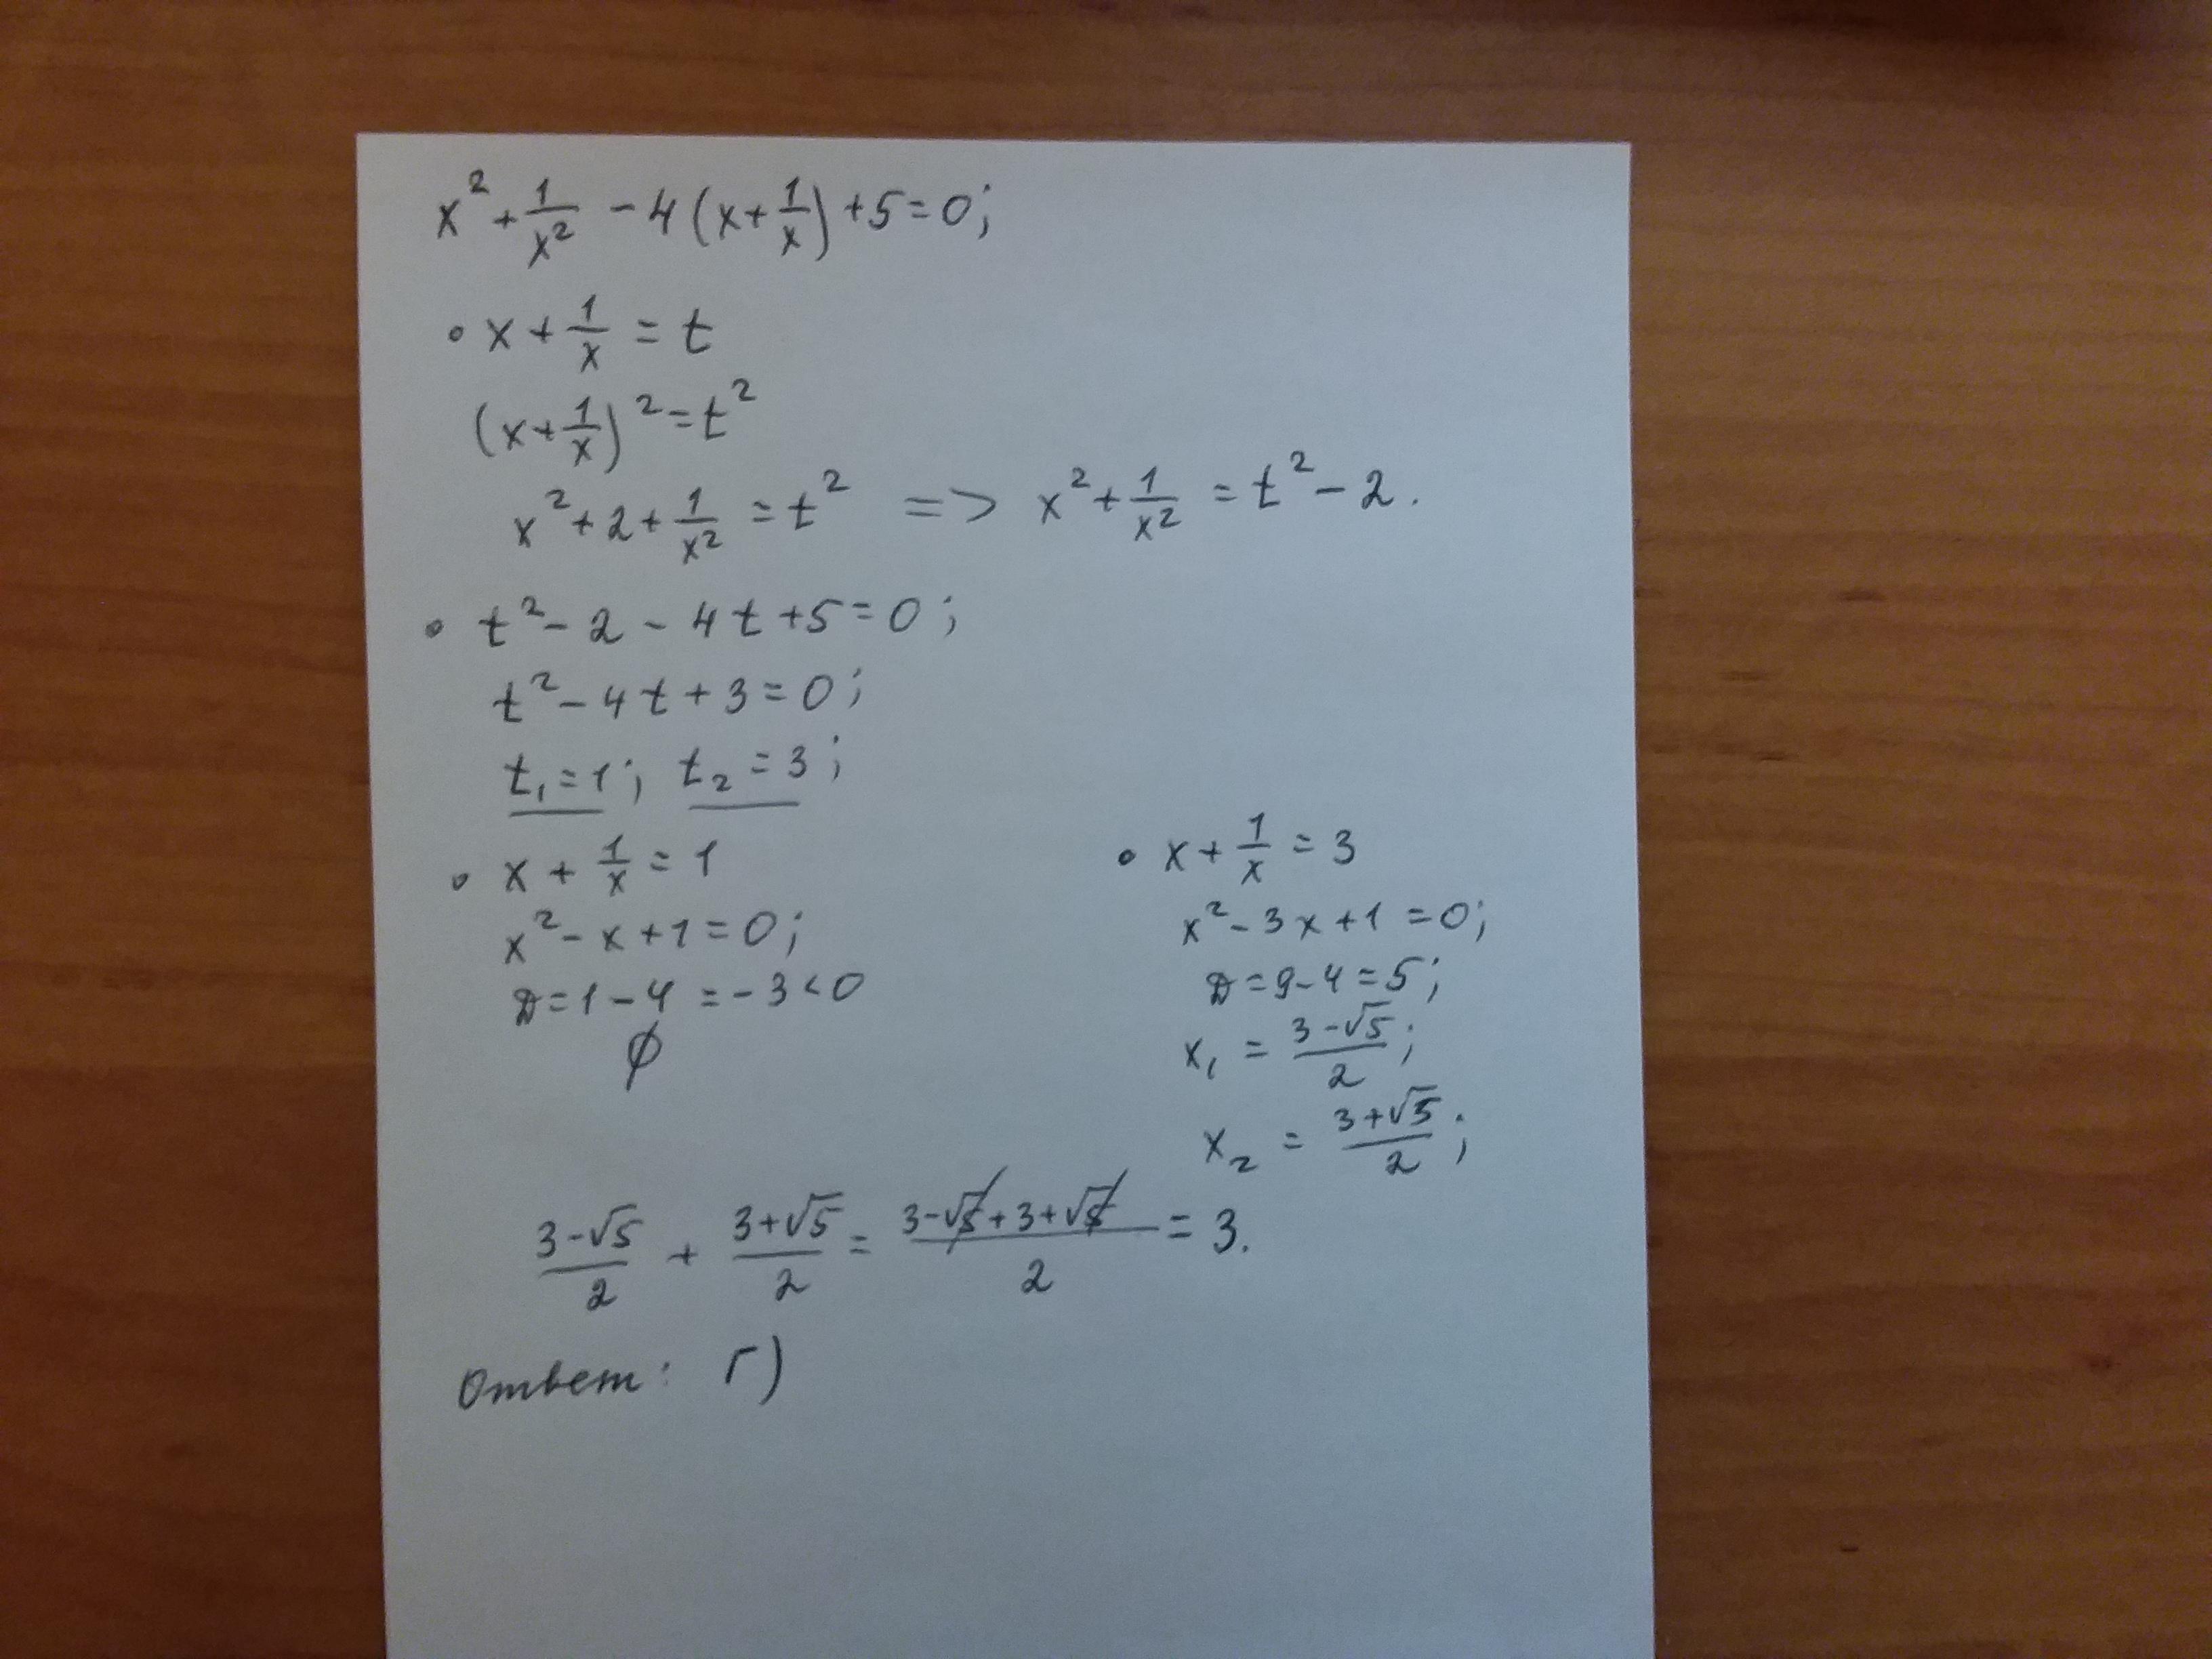 x² + 1/x² - 4(x + 1/x) + 5 = 0;
• x + 1/x = t
(x + 1/x)² = t²
x² + 2 + 1/x² = t² => x² + 1/x² = t² - 2.
• t² - 2 - 4t + 5 = 0;
t² - 4t + 3 = 0;
t₁ = 1; t₂ = 3;
• x + 1/x = 1
x² - x + 1 = 0;
D = 1 - 4 = -3 < 0
∅
• x + 1/x = 3
x² - 3x + 1 = 0;
D = 9 - 4 = 5;
x₁ = (3 - √5)/2;
x₂ = (3 + √5)/2;
(3 - √5)/2 + (3 + √5)/2 = (3 - √5 + 3 + √5)/2 = 3.
Ответ: г)